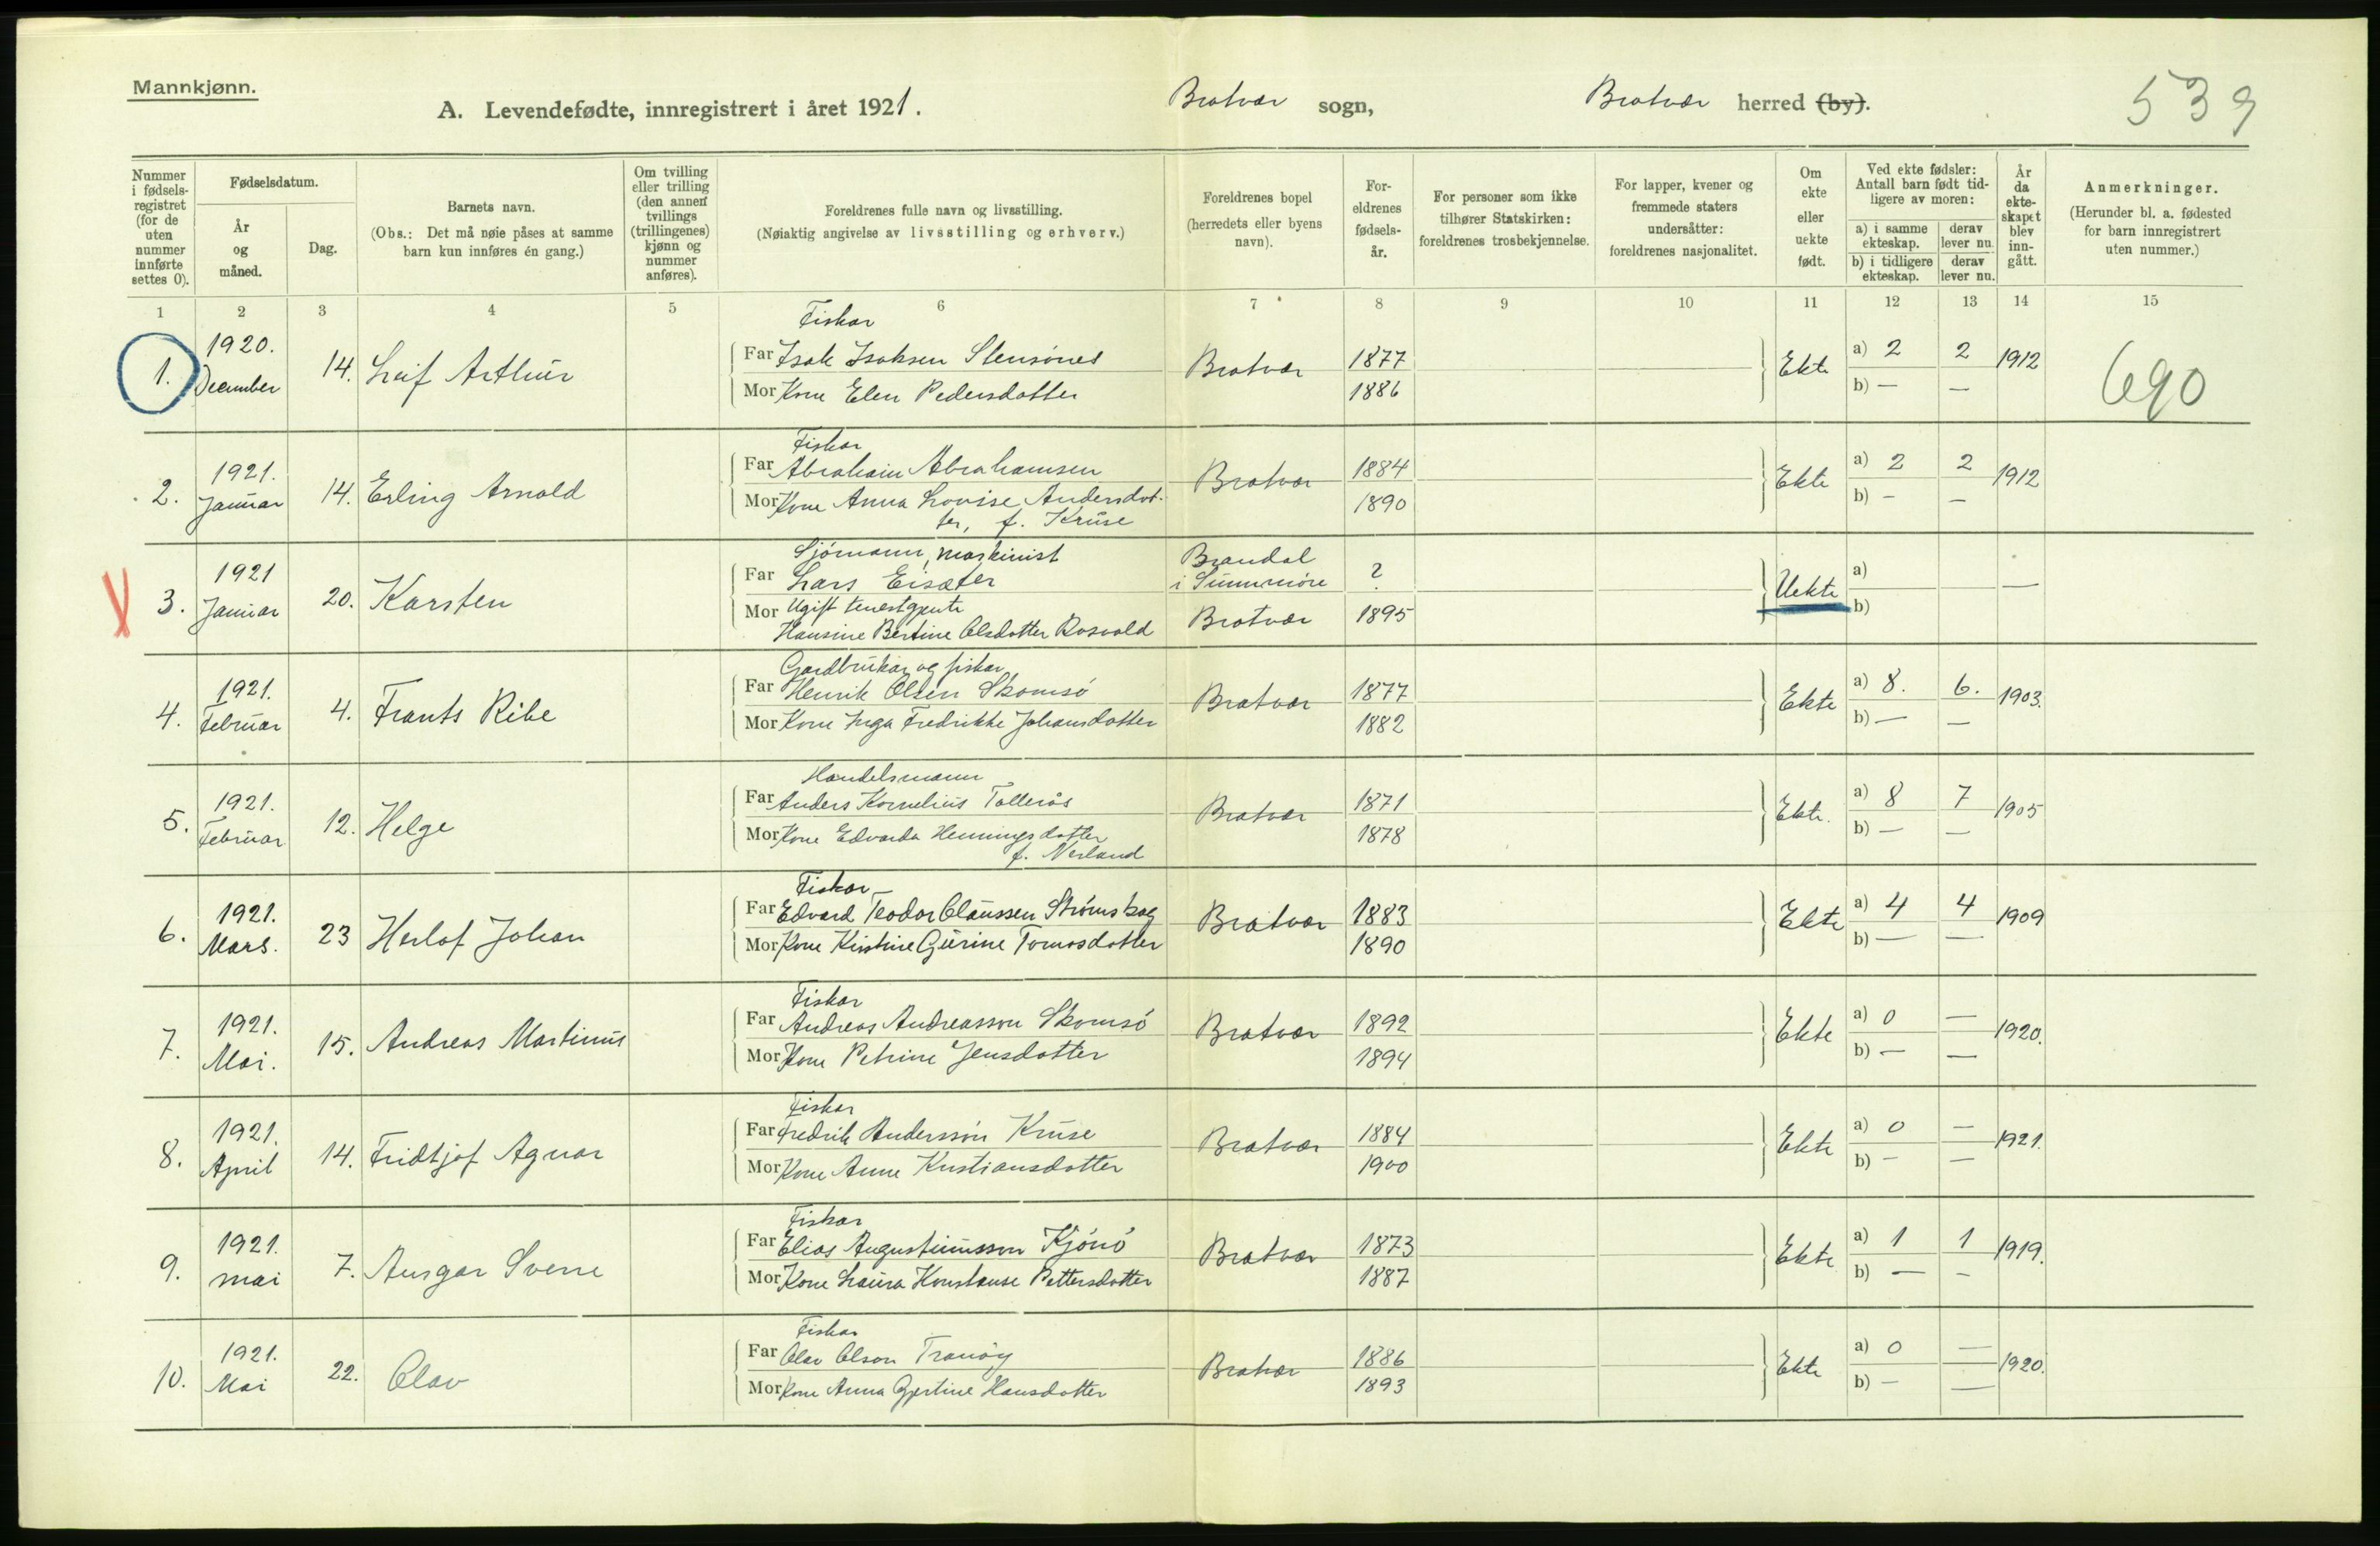 Mannkjønn.
A. Levendefødte, innregistrert i året 1921.
Bratvær sogn,
Bratvær herred (by).
539
Nummer i fødsels-registret (for de uten nummer innførte settes 0).
Fødselsdatum.
År og måned.
Dag.
Barnets navn.
(Obs.: Det må nøie påses at samme barn kun innføres én gang.)
Om tvilling eller trilling (den annen tvillings (trillingenes) kjønn og nummer anføres).
Foreldrenes fulle navn og livsstilling.
(Nøiaktig angivelse av livsstilling og erhverv.)
Foreldrenes bopel
(herredets eller byens navn).
For-eldrenes fødsels-år.
For personer som ikke tilhører Statskirken: foreldrenes trosbekjennelse.
For lapper, kvener og fremmede staters undersåtter: foreldrenes nasjonalitet.
Om ekte eller uekte født.
Ved ekte fødsler: Antall barn født tid-ligere av moren:
a) i samme ekteskap.
derav lever nu.
b) i tidligere ekteskap.
derav lever nu.
År da ekte-skapet blev inn-gått.
Anmerkninger.
(Herunder bl. a. fødested for barn innregistrert uten nummer.)
1 2 3 4 5 6 7 8 9 10 11 12 13 14 15
Fiskar
1. 1920. December 14. Leif Arthur
Far Isak Isaksen Stensønes Bratvær 1877 Ekte a) 2 2 1912
Mor Kone Elen Pedersdatter 1886 b) — —
690
Fiskar
2. 1921. Januar 14. Erling Arnold
Far Abraham Abrahamsen Bratvær 1884 Ekte a) 2 2 1912
Mor Kone Anna Lovise Andersdot- 1890 b) — —
ter, f. Kruse
Sjømann, maskinist Brandal
3. 1921 Januar 20. Karsten
Far Lars Eisæter i Sunnmøre ? Uekte a) —
Mor Ugift tenestgjente
Hansine Bertine Olsdotter Rosvold Bratvær 1895 b)
Gardbrukar og fiskar
4. 1921. Februar 4. Frants Ribe
Far Henrik Olsen Skomsø Bratvær 1877 Ekte a) 8. 6. 1903.
Mor Kone Inga Fredrikke Johansdotter 1882 b) — —
Handelsmann
5. 1921. Februar 12. Helge
Far Anders Kornelius Tollerås Bratvær 1871 Ekte. a) 8 7 1905
Mor Kone Edvarda Henningsdotter 1878 b) — —
f. Nerland
Fiskar
6. 1921. Mars. 23 Herlof Johan
Far Edvard Teodor Claussen Strømskag Bratvær 1883 Ekte a) 4 4 1909
Mor Kone Kirstine Gurine Tomasdotter 1890 b) — —
Fiskar
7. 1921. Mai. 15. Andreas Martinus
Far Andreas Andreasson Skomsø Bratvær 1892 Ekte a) 0 — 1920.
Mor Kone Petrine Jensdotter 1894 b) — —
Fiskar
8. 1921. April 14. Fridtjof Agnar
Far Fredrik Andersson Kruse Bratvær 1884 Ekte a) 0 — 1921.
Mor Kone Anne Kristiansdotter 1900 b) — —
Fiskar
9. 1921. mai 7. Ansgar Sverre
Far Elias Augustinusson Kjønø Bratvær 1873 Ekte a) 1 1 1919.
Mor Kone Laura Konstanse Pettersdotter 1887 b) — —
Fiskar
10. 1921. Mai 22. Olav
Far Olav Olson Tranöy Bratvær 1886 Ekte a) 0 — 1920.
Mor Kone Anna Gjertine Hansdotter 1893 b) — —